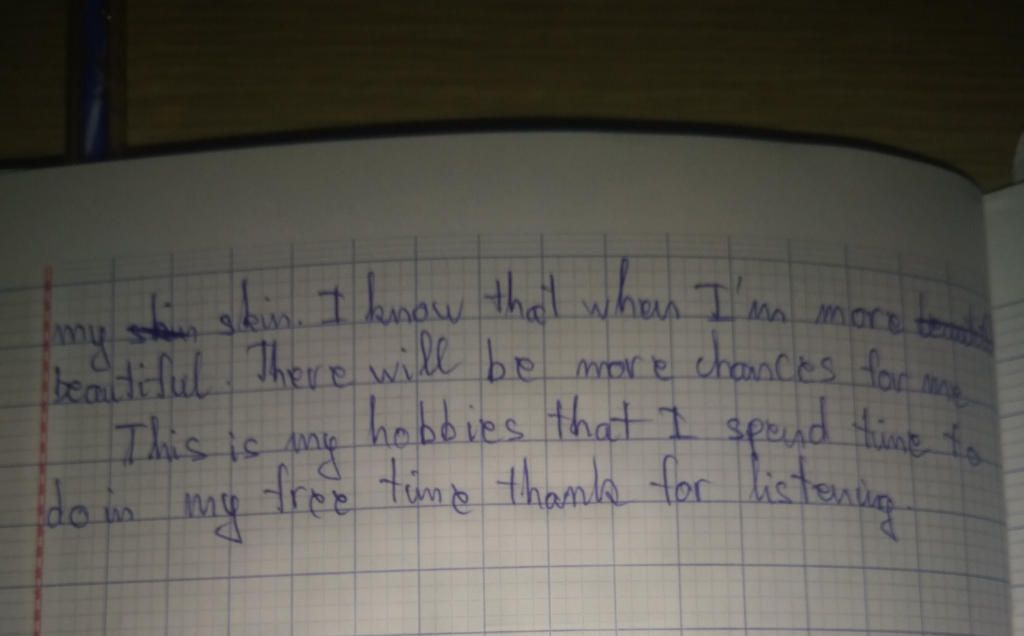 my skin. I know that when I'm more
beautiful. There will be more chances for me
This is my hobbies that I spend time to
do in my free time thank for listening.